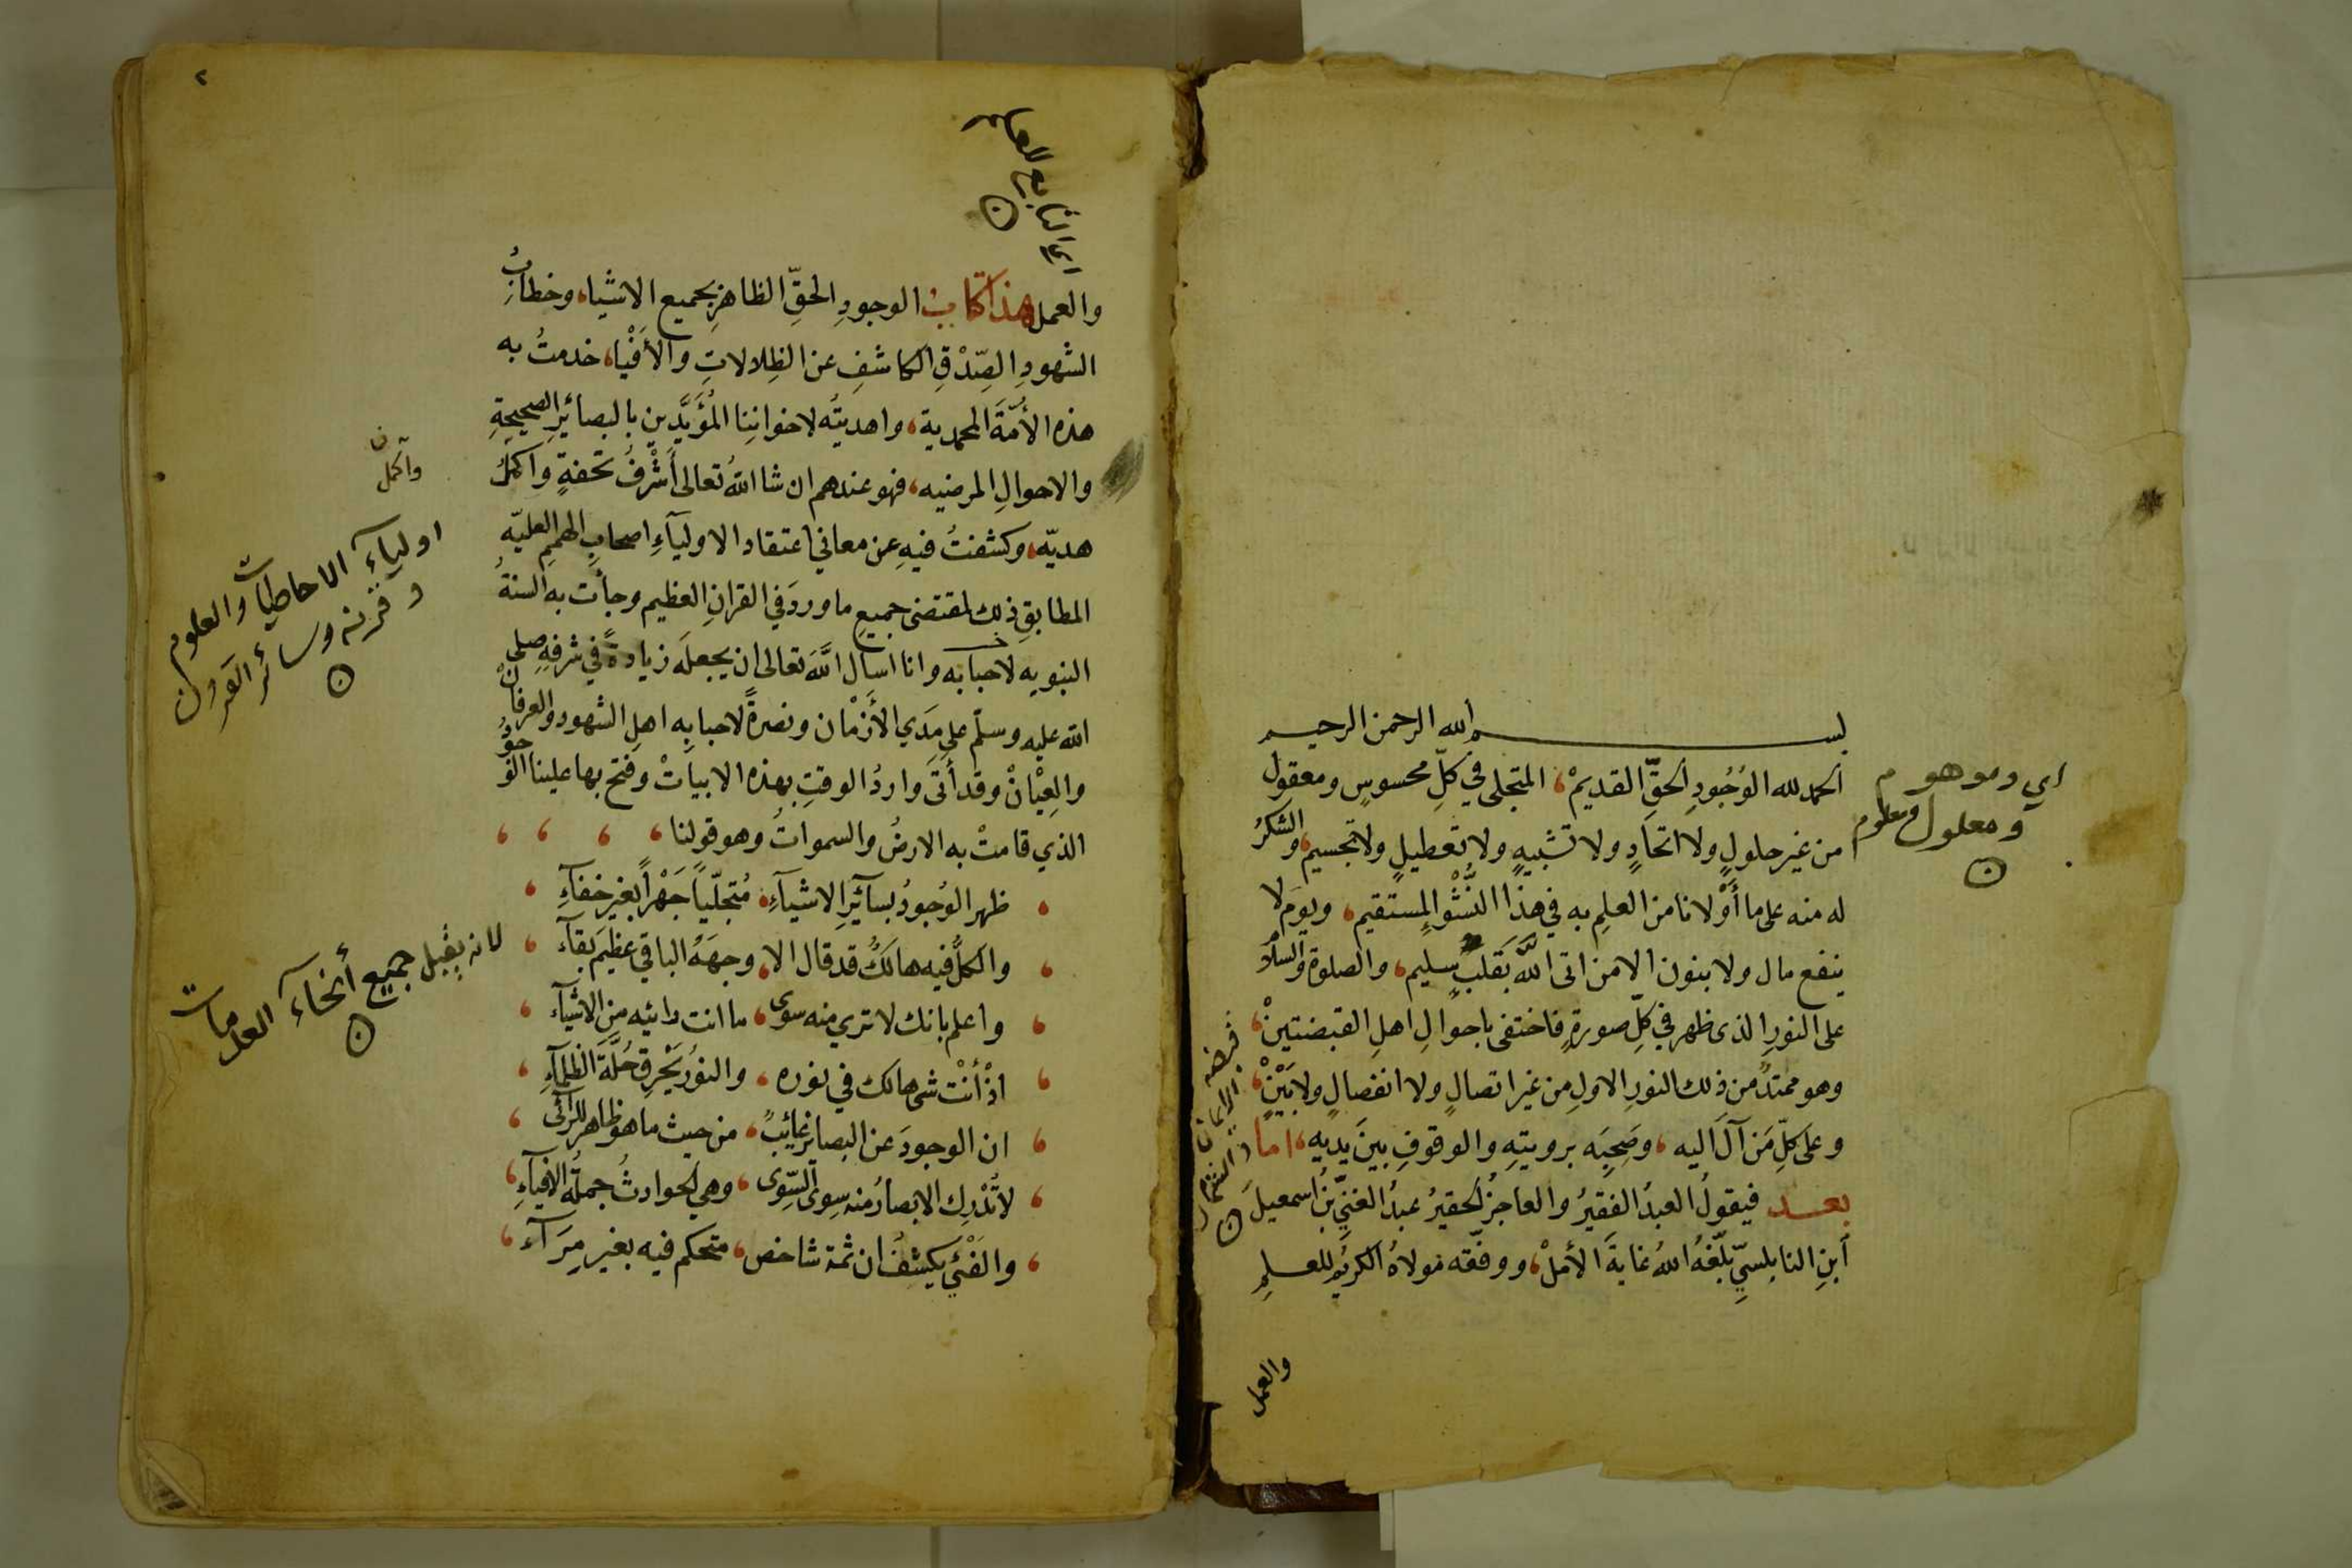 بسم الله الرحمن الرحيم
الحمد لله الوُجُودِ الحقِّ القديمْ، المتجلى في كلِّ محسوسٍ ومعقول
من غير حلولٍ ولا اتحادٍ ولا تشبيهٍ ولا تعطيلٍ ولا تجسيم، والشكرُ
له منه على ما أَوْلانا من العلمِ به في هذا النُّشْو المستقيم، ويومَ لا
ينفع مال ولا بنون الا من اتى اللّهَ بقلبٍ سليم، والصلوة والسلام
على النورِ الذى ظهر في كلِّ صورةٍ فاختفى باحوالِ اهلِ القبضتينْ،
وهو ممتدٌ من ذلك النورِ الاولِ من غير اتصالٍ ولا انفصالٍ ولا بَيْنْ،
وعلى كلِّ مَن آلَ اليه، وصَحِبَه برويتِهِ والوقوفِ بينَ يديه، اما
بعد فيقولُ العبدُ الفقيرُ والعاجزُ الحقيرُ عبدُ الغنيِّ بنُ اسمعيلَ
أبنِ النابلسيِّ بلّغهُ اللهُ غايةَ الأملْ، ووفّقه مولاهُ الكريمُ للعلمِ
والعمل
اي وموهوم
ومعلول ومعلوم
ن
٢
اي النابع للعلم
ن
والعمل هذا كتابُ الوجودِ الحقِّ الظاهرِ بجميع الاشياء، وخطابُ
الشهودِ الصِّدْقِ الكاشفِ عن الظِلالاتِ والأَفْياء، خدمتُ به
هذه الأُمّةَ المحمدية، واهديتُه لاخوانِنا المُؤَيَّدِين بالبصائرِ الصحيحةِ
والاحوالِ المرضيه، فهو عندهم ان شا اللهُ تعالى أَشْرَفُ تحفةٍ واكملُ
هديّه، وكشفتُ فيهِ عن معاني اعتقاد الاوليآءِ اصحابِ الهممِ العليّه
المطابقِ ذلك لمقتضى جميعِ ما وردَ في القرانِ العظيم وجأت به السنةُ
النبويه لاحبابه وانا اسال اللّهَ تعالى ان يجعلَه زيادةً في شرفِهِ صلى
الله عليه وسلّم على مَدَي الأَزْمان ونصرةً لاحبابِه اهلِ الشهود والعرفانْ
والعِيْانْ وقد أتَى واردُ الوقتِ بهذه الابياتْ وفتح بها علينا الحقُّ
الذي قامتْ به الارضُ والسمواتُ وهو قولنا،
ظهر الوُجودُ بسآئرِ الاشيآءِ، مُتجلّياً جَهْراً بغير خفآءِ
والكلُّ فيه هالكٌ قد قال الا، وجهَهُ الباقي عظيمَ بقآء
واعلم بانك لا تري منه سوى، ما انت رائيه من الاشيآء
اذْ أنْت شى هالك في نوره، والنورُ يَحْرِق حُلَّةَ الظلمآءِ
ان الوجودَ عن البصائر غائبٌ، من حيث ما هو ظاهر للرآئى
لا تُدْرِك الابصارُ منه سِوى السِّوى، وهي الحوادثُ جملةُ الافيآءِ
والفَئْي يكشفُ ان ثمة شاخص، متحكم فيه بغير مِرَآء
واكمل
ن
اوليآء الاحاطيات والعلوم
وقرنه وسائر القرون
ن
لانه يقبل جميع أنحآء العدمات
ن